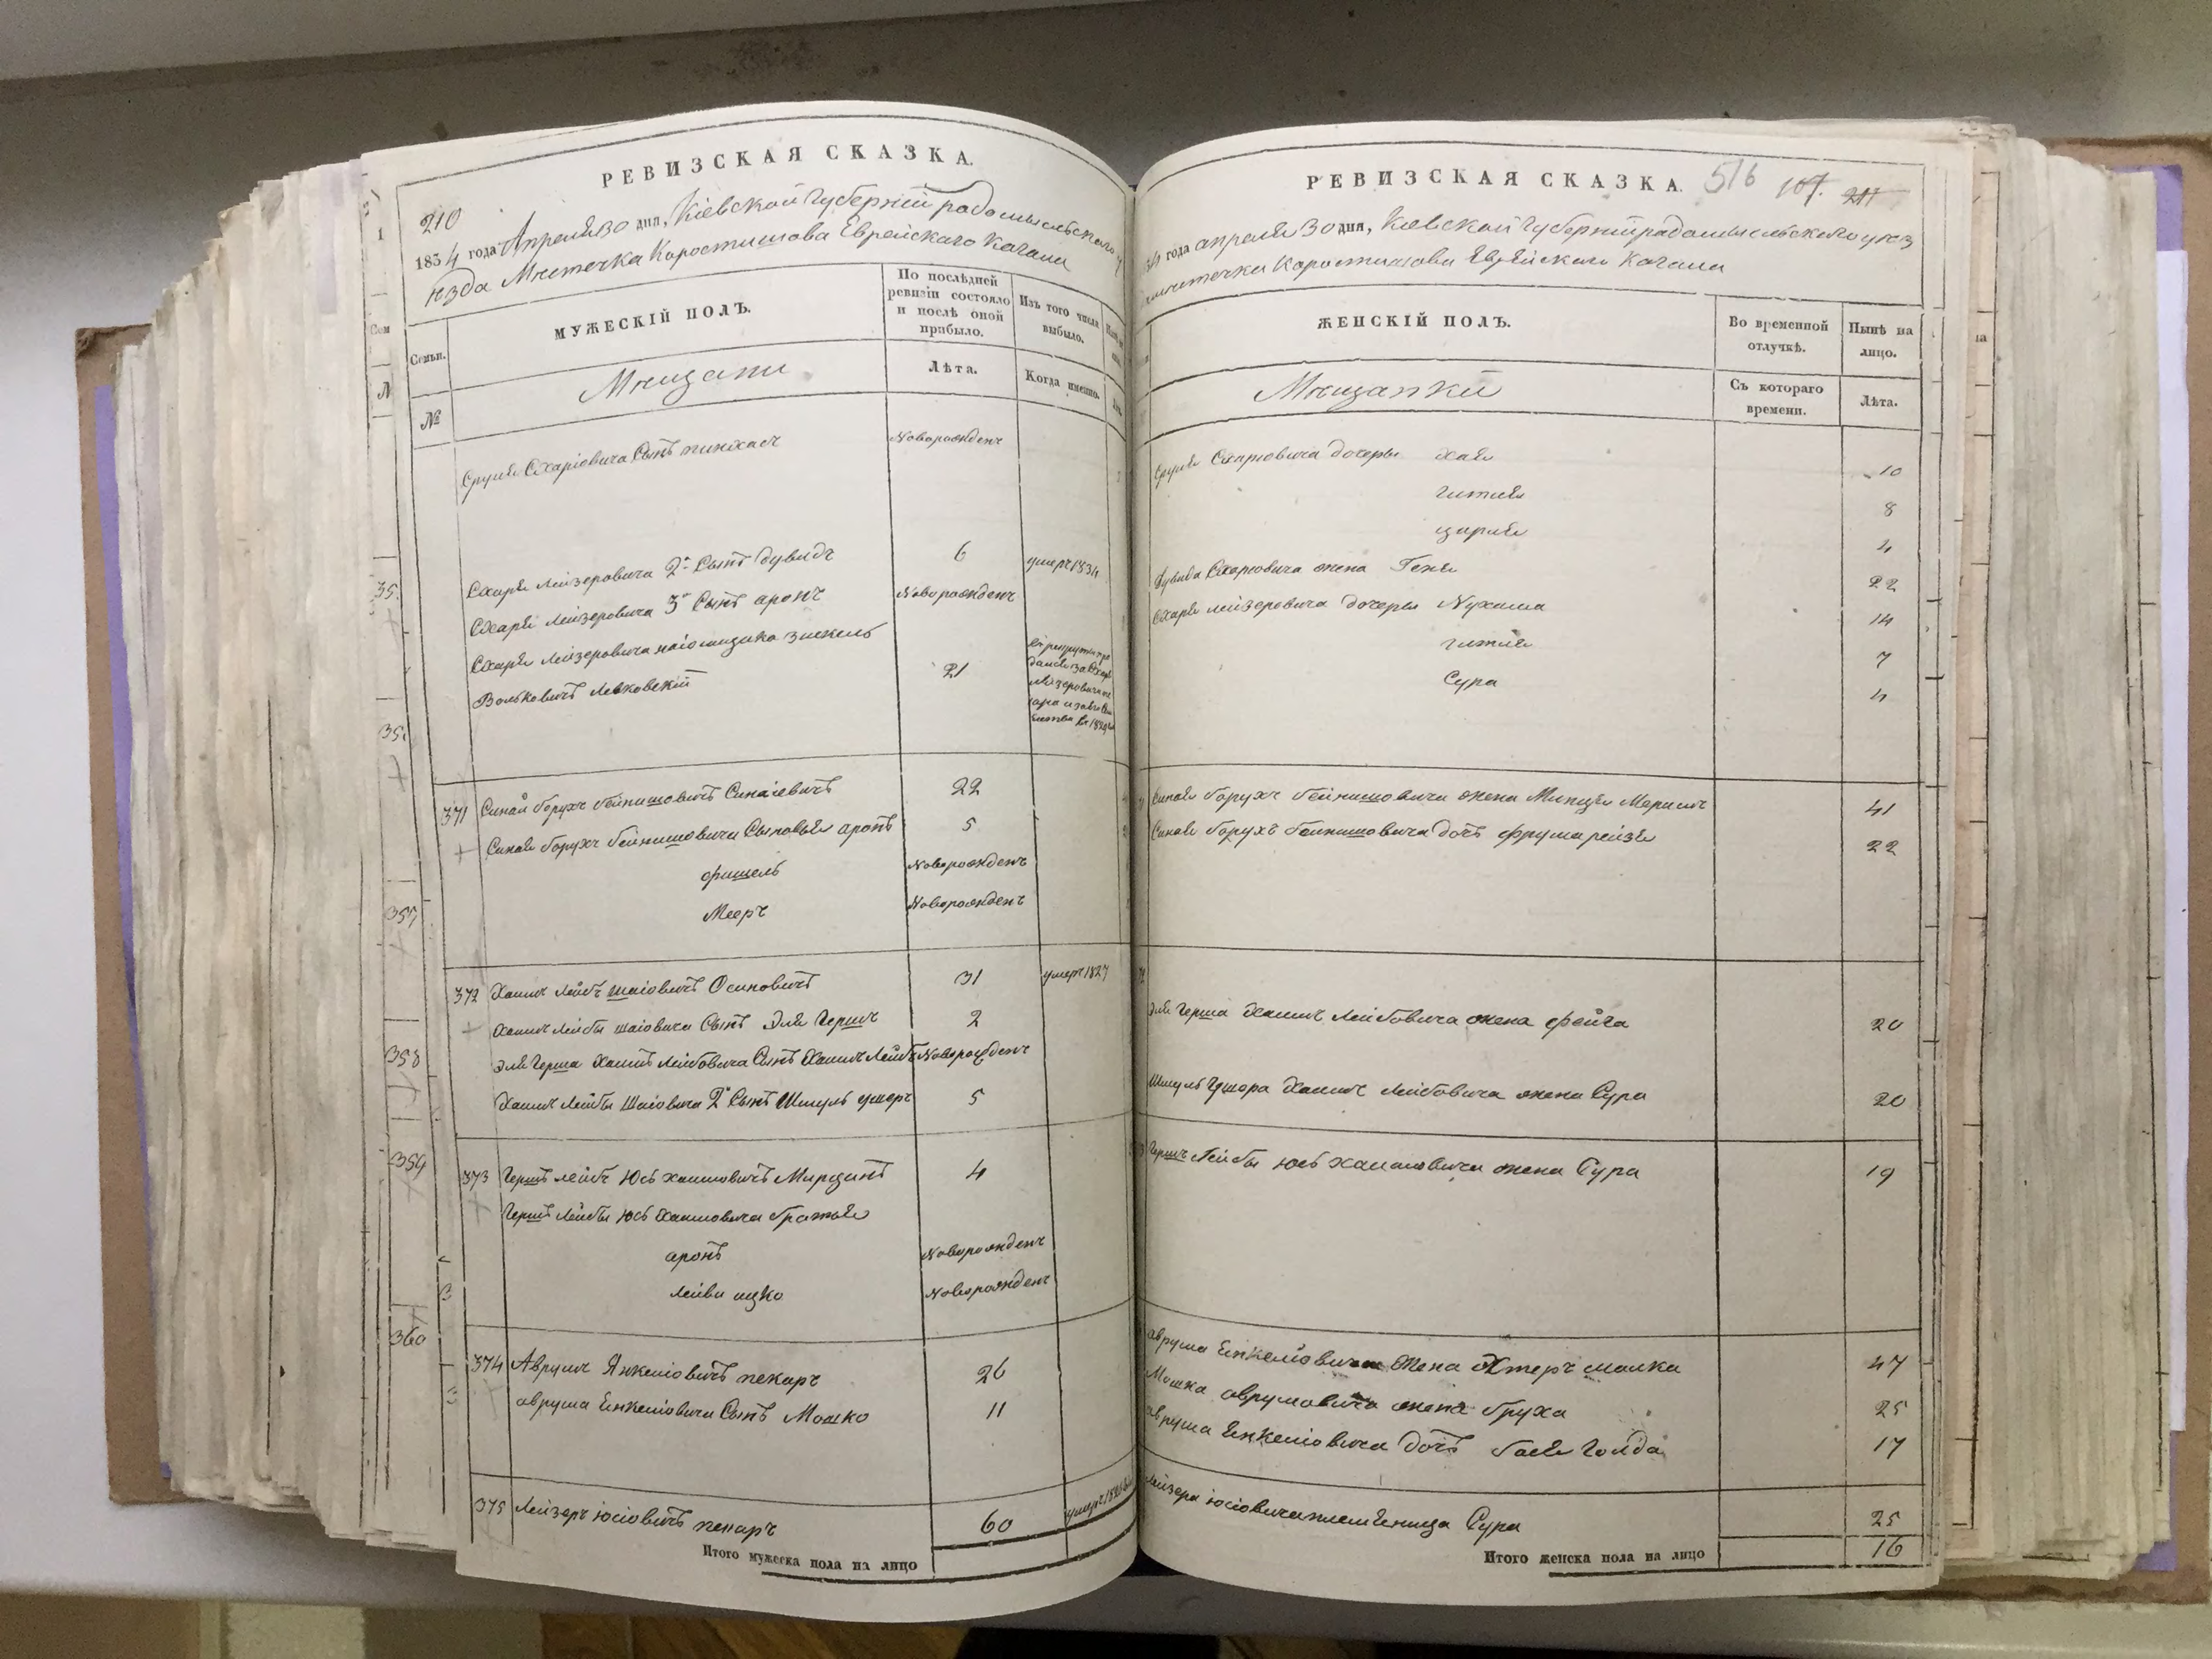 РЕВИЗСКАЯ СКАЗКА.
210
1834 года Апреля 30 дня, Кіевской Губерніи радомысльскаго у
нзда Мнстечка Коростишова Еврейскаго Кагала
Семьи.
МУЖЕСКІЙ ПОЛЪ.
По послѣдней ревизіи состояло и послѣ оной прибыло.
Изъ того числа выбыло.
№
Мнщани
Лѣта.
Когда именно.
Сруля Схаріовича Сынъ пинхасъ Новорожденъ
Схарія Лейзеровича 2й Сынъ Дувидъ 6 умеръ 1834
Схарія Лейзеровича 3й Сынъ аронъ Новорожденъ
Схарія Лейзеровича
Волковичъ Левковскій 21
371 Синай борухъ бейнишовичъ Синаіевичъ 22
Синая борухъ бейнишовича Сыновья аронъ 5
фишель Новорожденъ
Мееръ Новорожденъ
372 Хаимъ Лейбъ шаіовичъ Осиновичъ 31 умеръ 1827
Хаимъ Лейбы шаіовича Сынъ Эля Гершъ 2
Эля Герша Хаимъ Лейбовича Сынъ Хаимъ Лейбъ Новорожденъ
Хаимъ Лейбы Шаіовича 2й Сынъ Шмуль ушеръ 5
373 Гершъ лейбъ Юсь хаимовичъ Мирцинъ 4
Гершъ Лейбы Юсь Хаимовича братья
аронъ Новорожденъ
лейви ицко Новорожденъ
374 Аврумъ Янкеліовичъ пекаръ 26
аврума Енкеліовича Сынъ Мошко 11
375 Лейзеръ іосіовичъ пекаръ 60
Итого мужеска пола на лицо
РЕВИЗСКАЯ СКАЗКА.
516 107. 211
34 года апреля 30 дня, Кіевской Губерніи радомысльскаго унз
мнстечка Коростишова Еврейскаго Кагала
ЖЕНСКІЙ ПОЛЪ.
Во временной отлучкѣ.
Нынѣ на лицо.
Мнщанки
Съ котораго времени.
Лѣта.
Сруля Схаріовича дочеры хая 10
гитля 8
цирля 4
Дувида Схаріовича жена Геня 22
Схарія лейзеровича дочеры Нухама 14
гитля 7
Сура 4
Синая борухъ бейнишовича жена Минця Мериамъ 41
Синая борухъ бейнишовича дочъ фрума рейзя 22
Эля герша Хаимъ Лейбовича жена фейга 20
Шмуль Ушера Хаимъ Лейбовича жена Сура 20
Гершъ Лейбы Юсь хаимовича жена Сура 19
аврума Енкеліовича жена Эстеръ малка 47
Мошка аврумовича жена бруха 25
аврума Енкеліовича дочъ бася голда 17
лейзера іосіовича племяница Сура 25
Итого женска пола на лицо 16
35
357
358
359
360